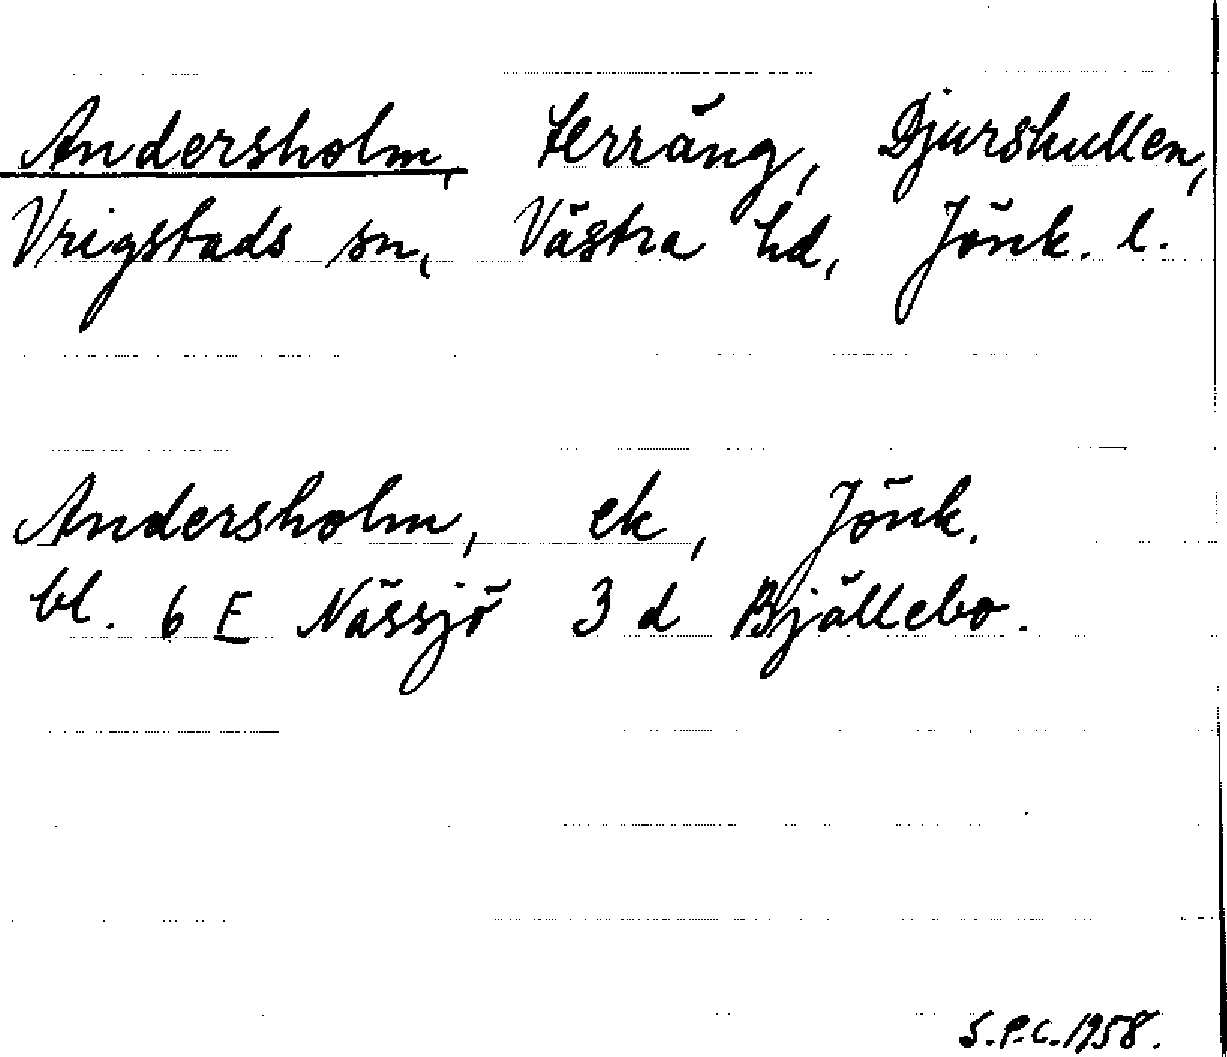 Andersholm, terräng, Djurskullen,
Vrigstads sn, Västra hd, Jönk. l.
Andersholm, ek, Jönk.
bl. 6 E Nässjö 3 d Bjällebo.
S.P.C. 1958.